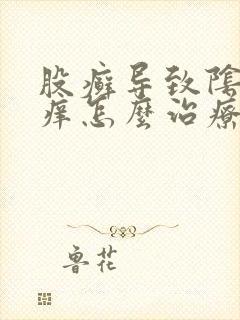 股癣导致陰
痒怎麼治療
鲁花